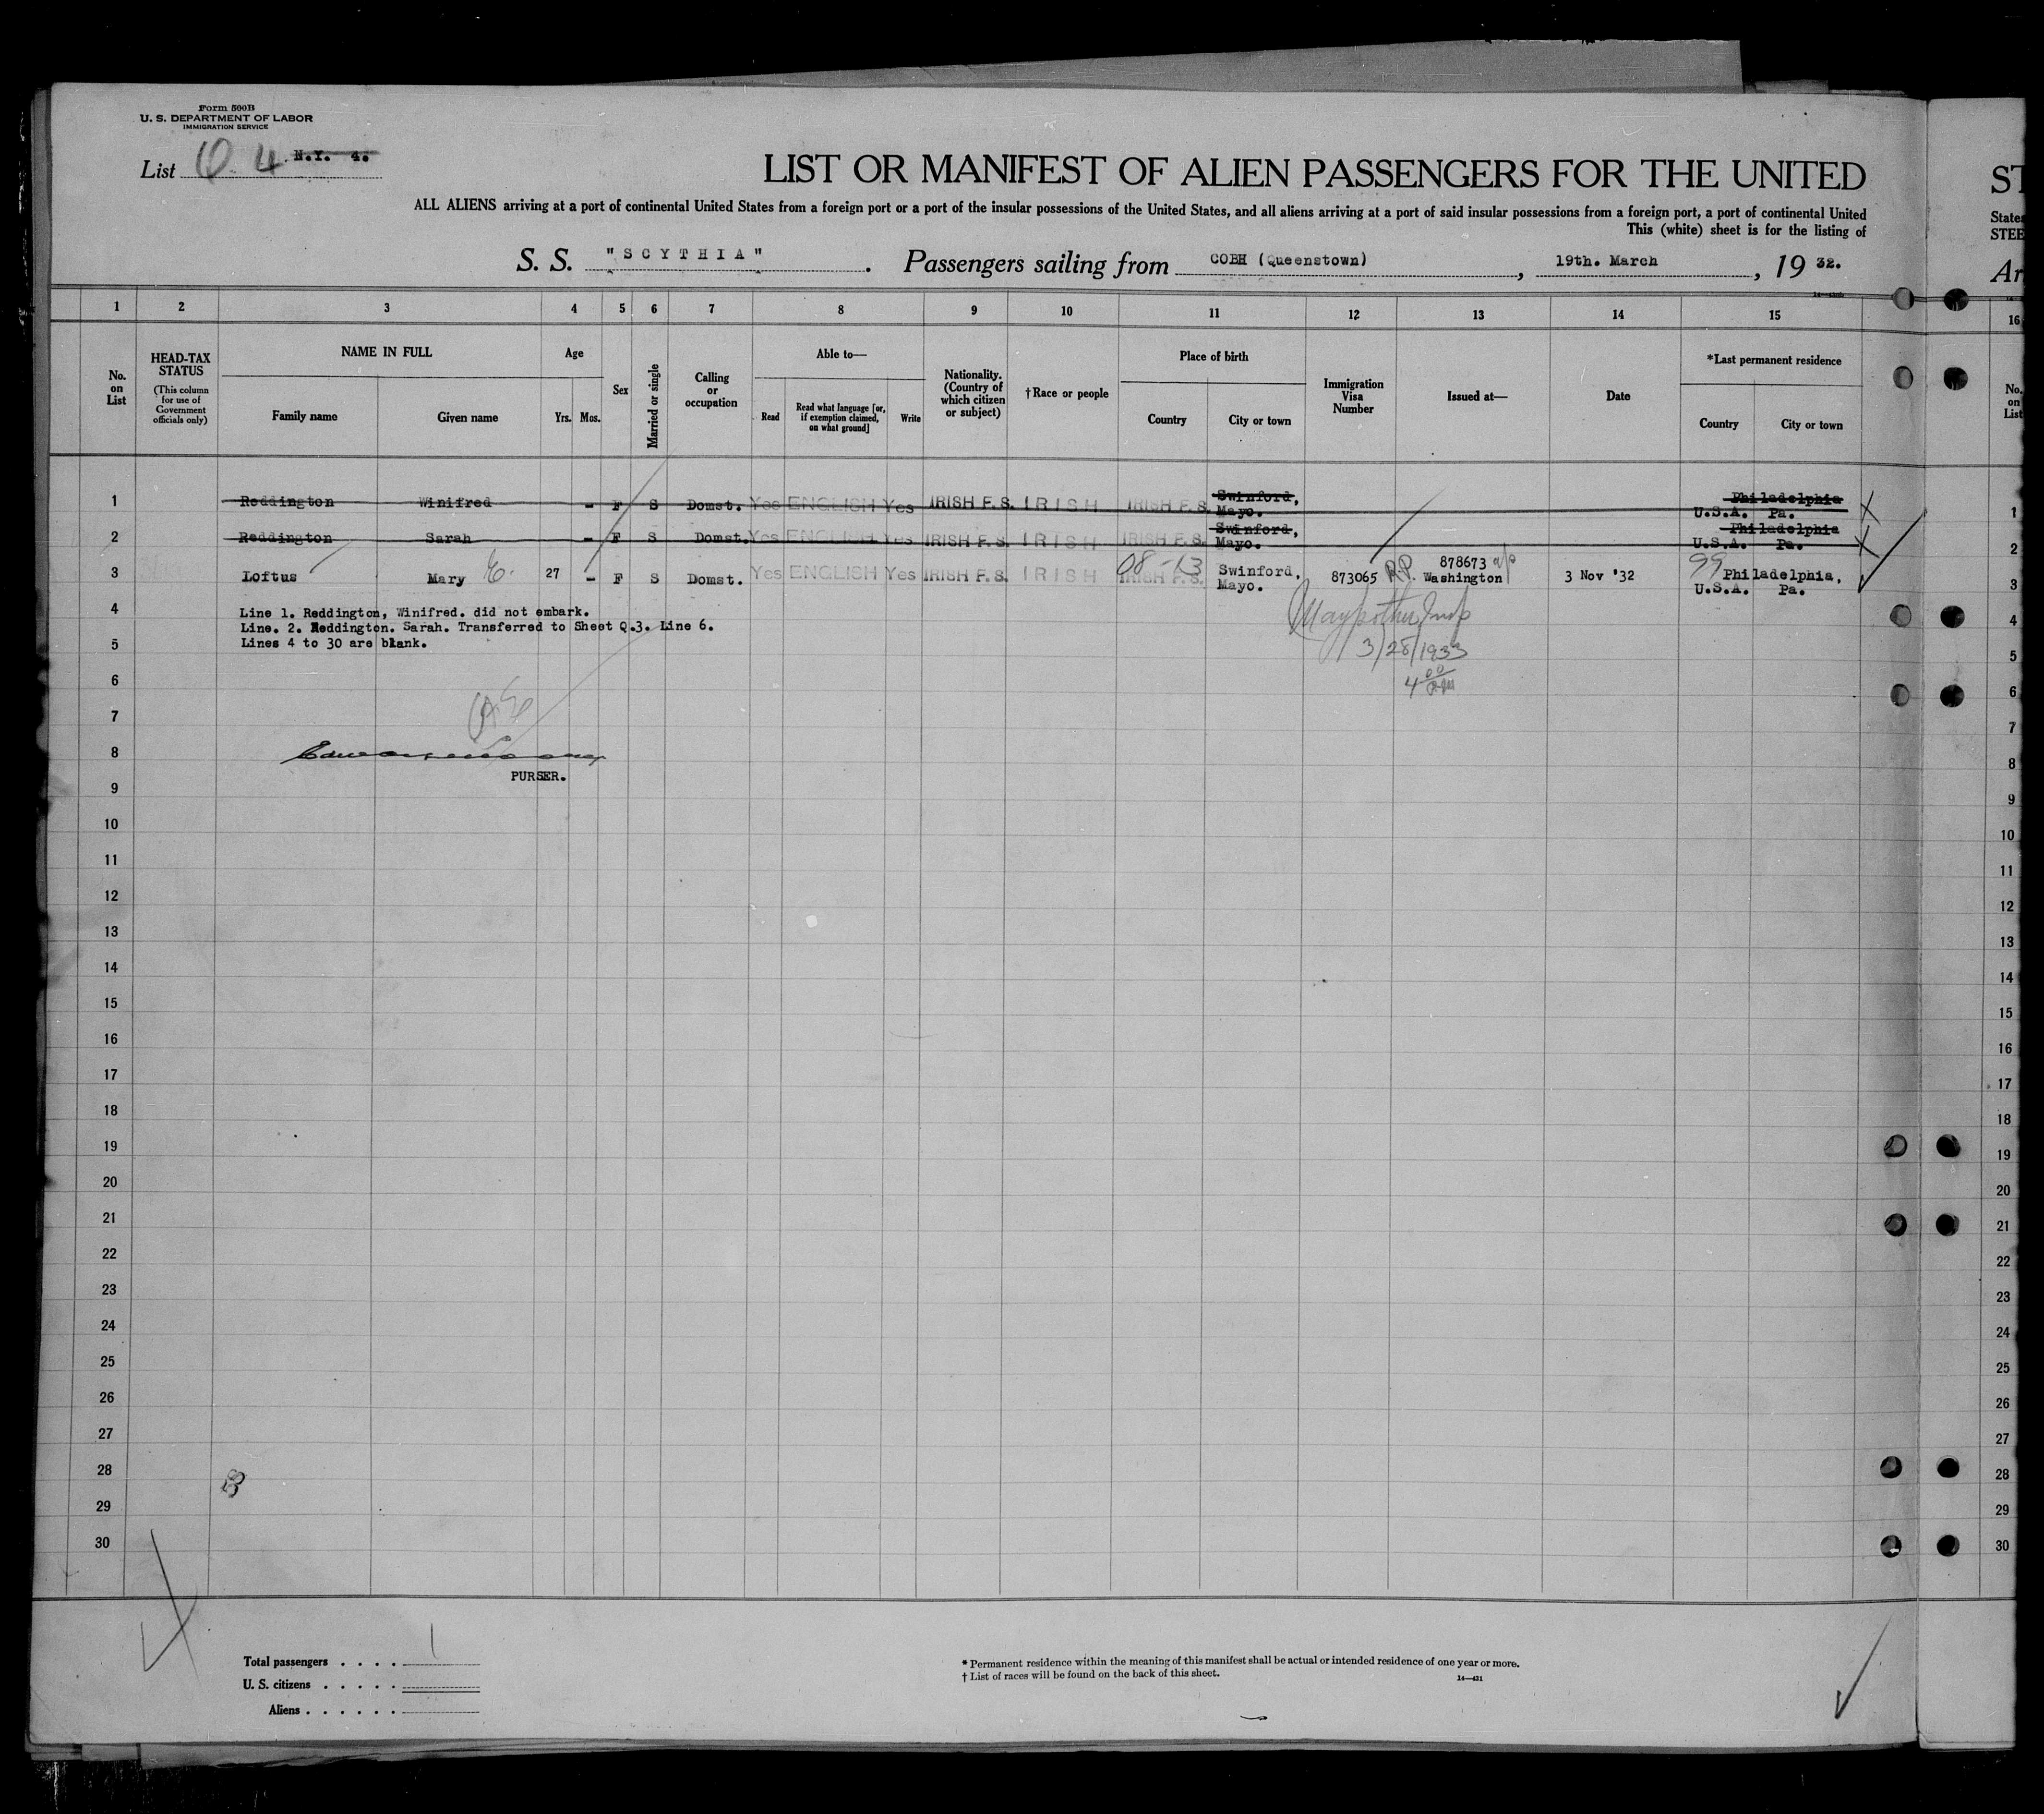 Form 500B
U. S. DEPARTMENT OF LABOR
IMMIGRATION SERVICE
List Q. 4. N.Y. 4.
LIST OR MANIFEST OF ALIEN PASSENGERS FOR THE UNITED
ALL ALIENS arriving at a port of continental United States from a foreign port or a port of the insular possessions of the United States, and all aliens arriving at a port of said insular possessions from a foreign port, a port of continental United
This (white) sheet is for the listing of
S. S. "SCYTHIA". Passengers sailing from COBH (Queenstown), 19th. March, 19 32.
ST
States
STEE
Ar
1 2 3 4 5 6 7 8 9 10 11 12 13 14 15 16
No. on List
HEAD-TAX STATUS
(This column for use of Government officials only)
NAME IN FULL
Family name
Given name
Age
Yrs. Mos.
Sex
Married or single
Calling or occupation
Able to—
Read
Read what language [or, if exemption claimed, on what ground]
Write
Nationality. (Country of which citizen or subject)
†Race or people
Place of birth
Country
City or town
Immigration Visa Number
Issued at—
Date
*Last permanent residence
Country
City or town
No. on List
1 Reddington Winifred - F S Domst. Yes ENGLISH Yes IRISH F.S. IRISH IRISH F.S. Swinford, Mayo. U.S.A. Philadelphia Pa. X 1
2 Reddington Sarah - F S Domst. Yes ENGLISH Yes IRISH F.S. IRISH IRISH F.S. Swinford, Mayo. U.S.A. Philadelphia Pa. X 2
3 Loftus Mary E. 27 - F S Domst. Yes ENGLISH Yes IRISH F.S. IRISH IRISH F.S. 08-13 Swinford, Mayo. 873065 R.P. 878673 Washington 3 Nov '32 99 U.S.A. Philadelphia, Pa. 3
4 Line 1. Reddington, Winifred. did not embark. 4
Line. 2. Reddington. Sarah. Transferred to Sheet Q.3. Line 6.
5 Lines 4 to 30 are blank. 5
3/28/1933
4 00
6 6
7 7
8 8
PURSER.
9 9
10 10
11 11
12 12
13 13
14 14
15 15
16 16
17 17
18 18
19 19
20 20
21 21
22 22
23 23
24 24
25 25
26 26
27 27
28 28
29 29
30 30
Total passengers . . . . 1
U. S. citizens . . . . .
Aliens . . . . . .
* Permanent residence within the meaning of this manifest shall be actual or intended residence of one year or more.
† List of races will be found on the back of this sheet.
14—431